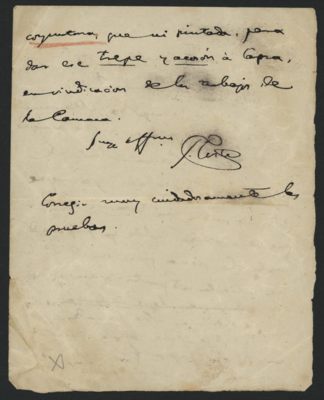 coyuntura, que ni pintada, para
dar ese trepe y acosón à Capra,
en vindicacion de los trabajos de
la Camara.
Suyo affmo
Corregir muy cuidadosamente las
pruebas.